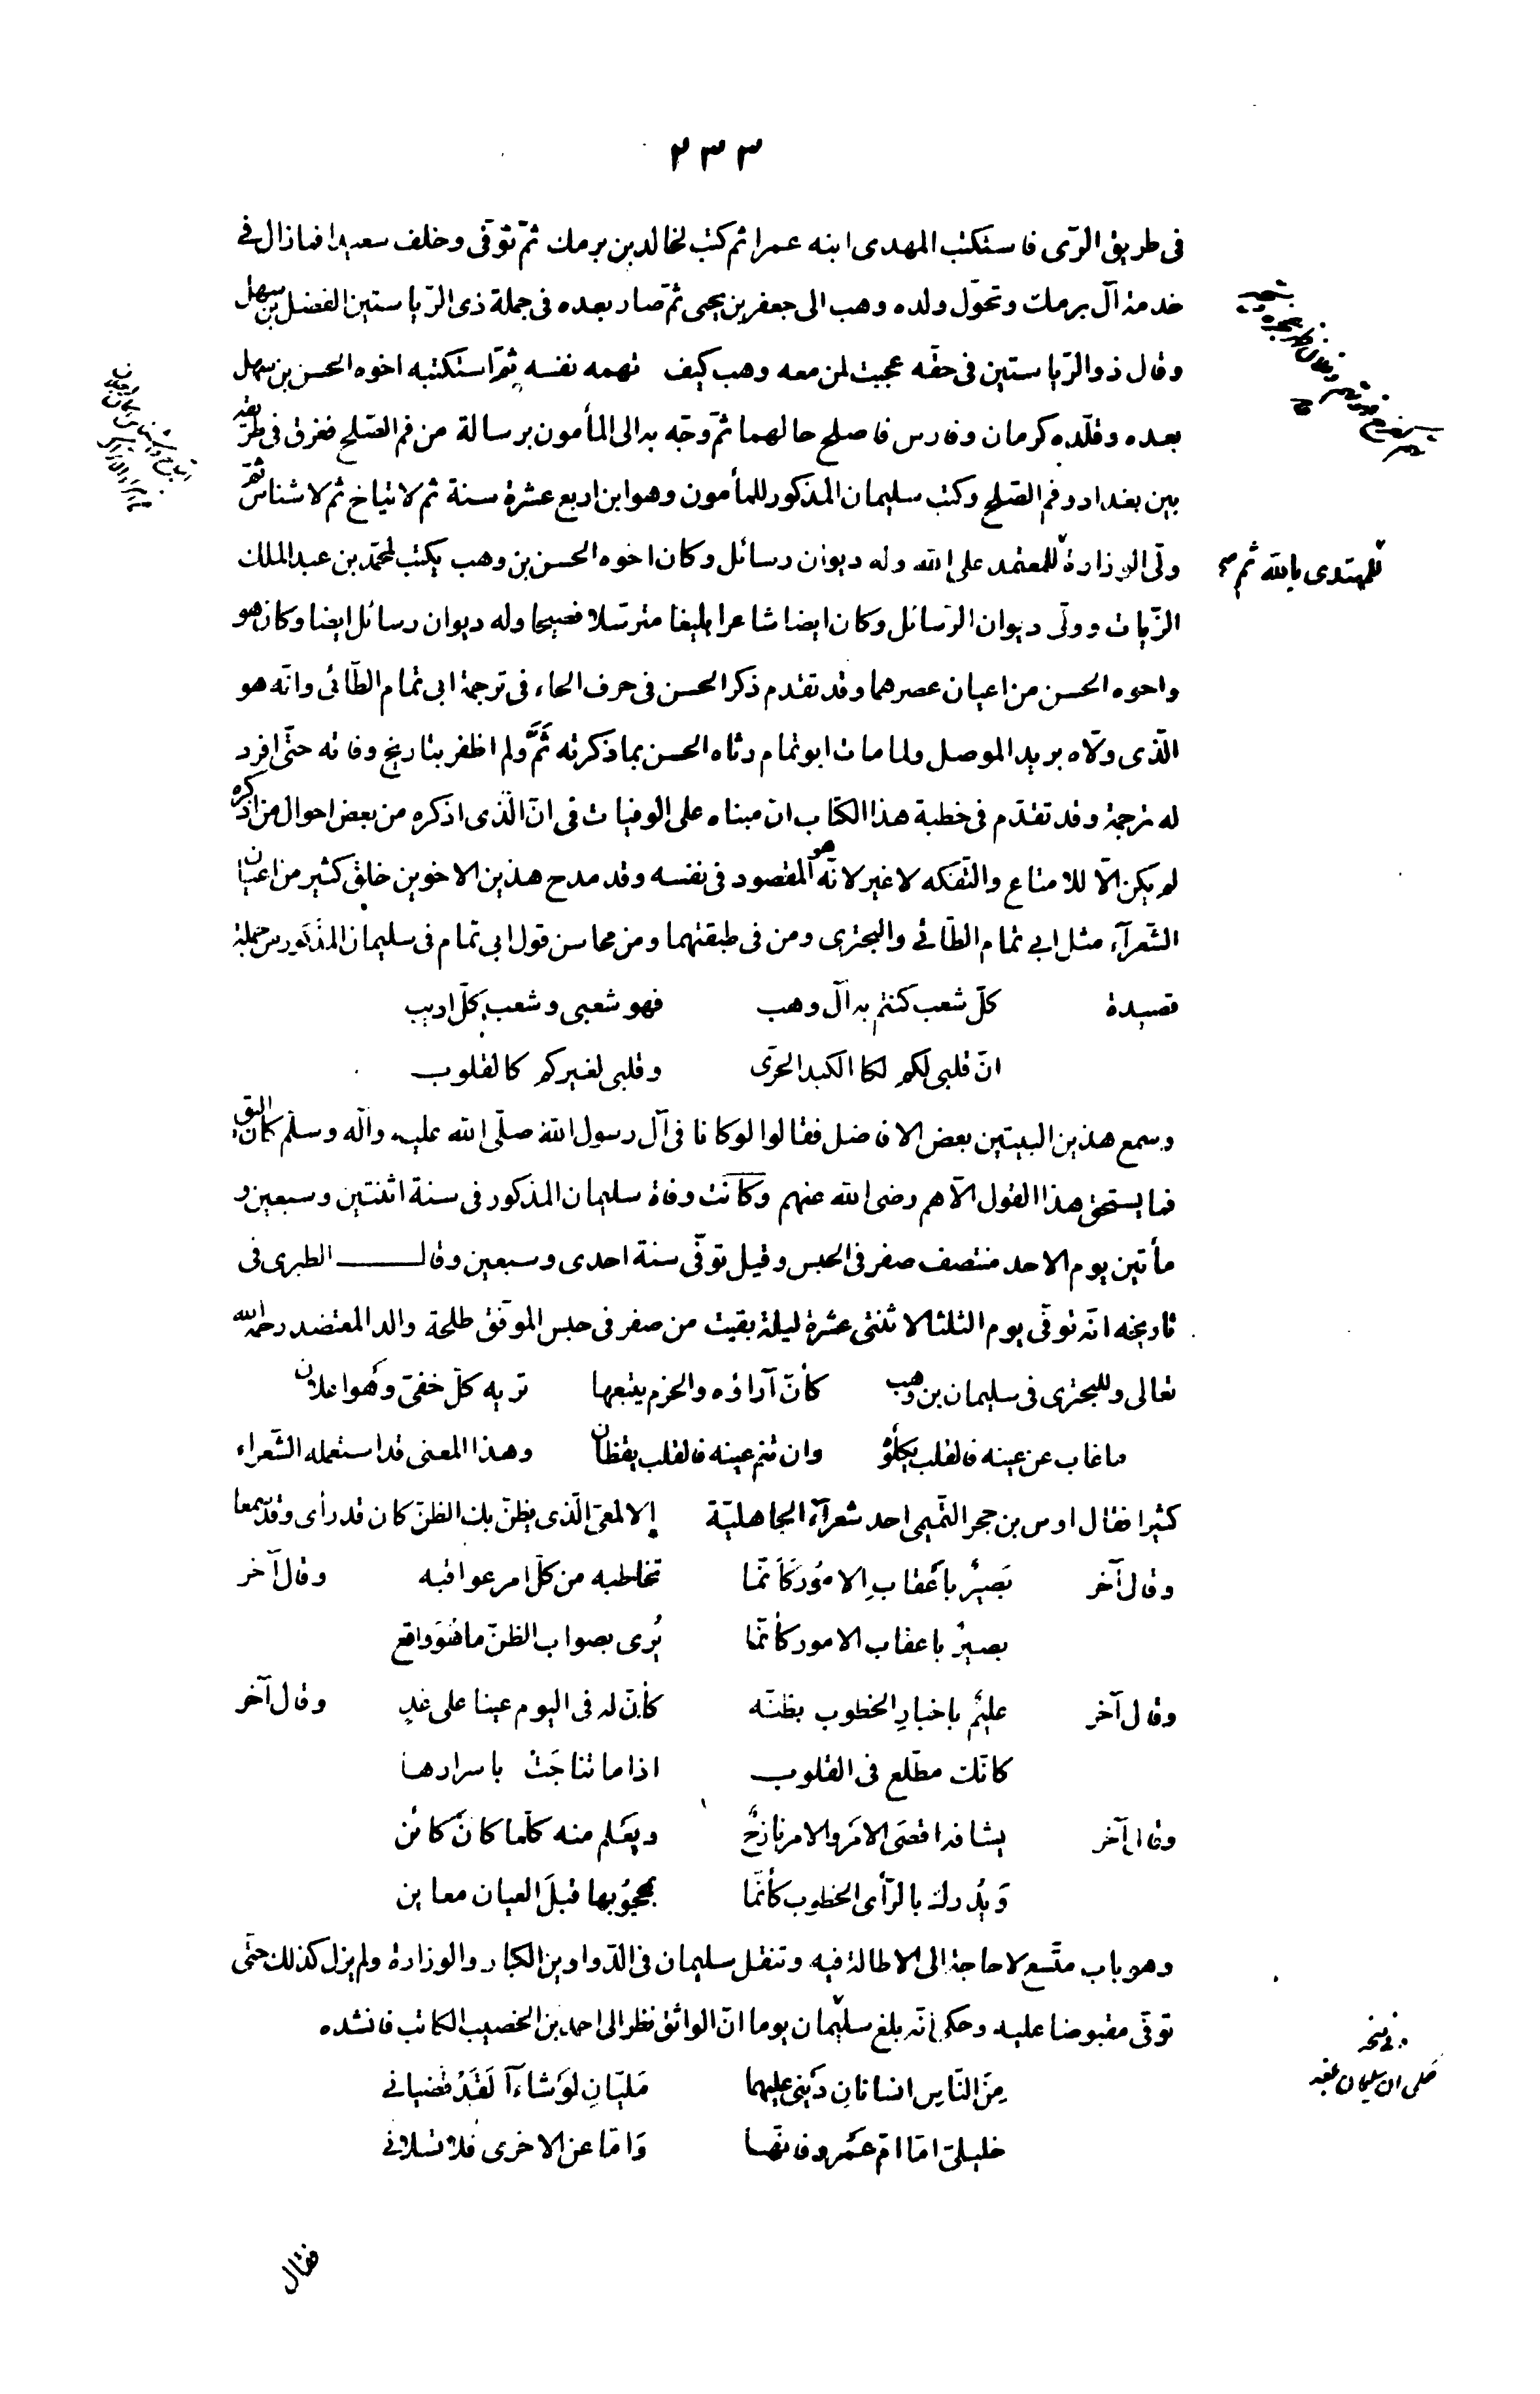 ٢٣٣
فى طريق الرّى فاستكتب المهدى ابنه عمرا ثم كتب لخالد بن برمك ثمّ توّفى وخلف سعيدا فما زال فى
خدمة آل برمك وتحوّل ولده وهب الى جعفر بن يحيى ثمّ صار بعده فى جملة ذى الرّياستين الفضل بن سهل
وقال ذو الرّياستين فى حقّه عجبت لمن معه وهب كيف تهمه نفسه ثمّ استكتبه اخوه الحسن بن سهل
بعده وقلّده كرمان وفارس فاصلح حالهما ثمّ وجّه به الى المأمون برسالة من فم الصّلح فغرق فى طريقه
بين بغداد وفم الصّلح وكتب سليمان المذكور للمأمون وهو ابن اربع عشرة سنة ثم لايتاخ ثم لاشناس ثمّ
ولّى الوزارة للمعتمد على الله وله ديوان رسائل وكان اخوه الحسن بن وهب يكتب لمحمّد بن عبد الملك
للمهتدى بالله ثم
الزّيات وولّى ديوان الرّسائل وكان ايضا شاعرا بليغا مترسّلا فصيحا وله ديوان رسائل ايضا وكان هو
واخوه الحسن من اعيان عصرهما وقد تقدم ذكر الحسن فى حرف الحاء فى ترجمة ابى تمام الطّائى وانّه هو
الّذى ولّاه بريد الموصل ولما مات ابو تمام رثاه الحسن بما ذكرته ثَمَّ ولم اظفر بتاريخ وفاته حتّى افرد
له ترجمة وقد تقدّم فى خطبة هذا الكتاب ان مبناه على الوفيات فى انّ الّذى اذكره من بعض احوال من اذكره
لم يكن الّا للامتاع والتّفكه لا غير لانّه هو المقصود فى نفسه وقد مدح هذين الاخوين خلق كثير من اعيان
الشّعرآء مثل ابى تمام الطّائى والبحترى ومن فى طبقتهما ومن محاسن قول ابى تمّام فى سليمان المذكور من جملة
قصيدة كلّ شعب كنتم به آل وهب فهو شعبى وشعب كلّ اديب
انّ قلبى لكم لكا الكبد الحرّى وقلبى لغيركم كالقلوب
وسمع هذين البيتين بعض الافاضل فقالوا لو كانا فى آل رسول الله صلّى الله عليه وآله وسلّم كان اليق
فما يستحق هذا القول الّا هم رضى الله عنهم وكانت وفاة سليمان المذكور فى سنة اثنتين وسبعين و
مأتين يوم الاحد منتصف صفر فى الحبس وقيل توفّى سنة احدى وسبعين وقال الطبرى فى
تاريخه انّه توفّى يوم الثلثا لاثنتى عشرة ليلة بقيت من صفر فى حبس الموفّق طلحة والد المعتضد رحمه الله
تعالى وللبحترى فى سليمان بن وهب كأنّ آراؤه والحزم يتبعها تريه كلّ خفىّ وهو اعلان
ما غاب عن عينه فالقلب يكلؤ وان تنم عينه فالقلب يقظان وهذا المعنى قد استعمله الشّعراء
كثيرا فقال اوس بن حجر التّميمى احد شعرآء الجاهليّة الالمعىّ الّذى يظنّ بك الظنّ كان قد رأى وقد سمعا
وقال آخر بَصيرٌ بأعقابِ الامُور كَاَنّما تخاطبه من كلّ امر عواقبه وقال آخر
بصيرٌ باعقاب الامور كأنّما يُرى بصواب الظنّ ما هُوَ واقع
وقال آخر عليمٌ باخبارِ الخطوب بظنّه كأنّ له فى اليوم عينا على غدٍ وقال آخر
كانّك مطّلع فى القلوب اذا ما تناجَتْ باسرارها
وقال آخر يشاهد اقصَى الامَر والامر نازحٌ ويعَلم منه كلّما كانَ كائن
وَيُدرك بالرّأى الخطوب كأنّما قبلَ العيان معاين
وهو باب متّسع لا حاجة الى الاطالة فيه وتنقل سليمان فى الدّواوين الكبار والوزارة ولم يزل كذلك حتّى
توفّى مقبوضا عليه وحكى انّه بلغ سليمان يوما انّ الواثق نظر الى احمد بن الخصيب الكاتب فانشده
مِنَ النّاسِ انسانانِ دَينى عليهما مَليّانِ لوَ شاءآ لَقَدْ قضيانى
خليلىّ امّا امّ عَمْرو فانّها وَامّا عن الاخرى فلا تسلانى
فقال